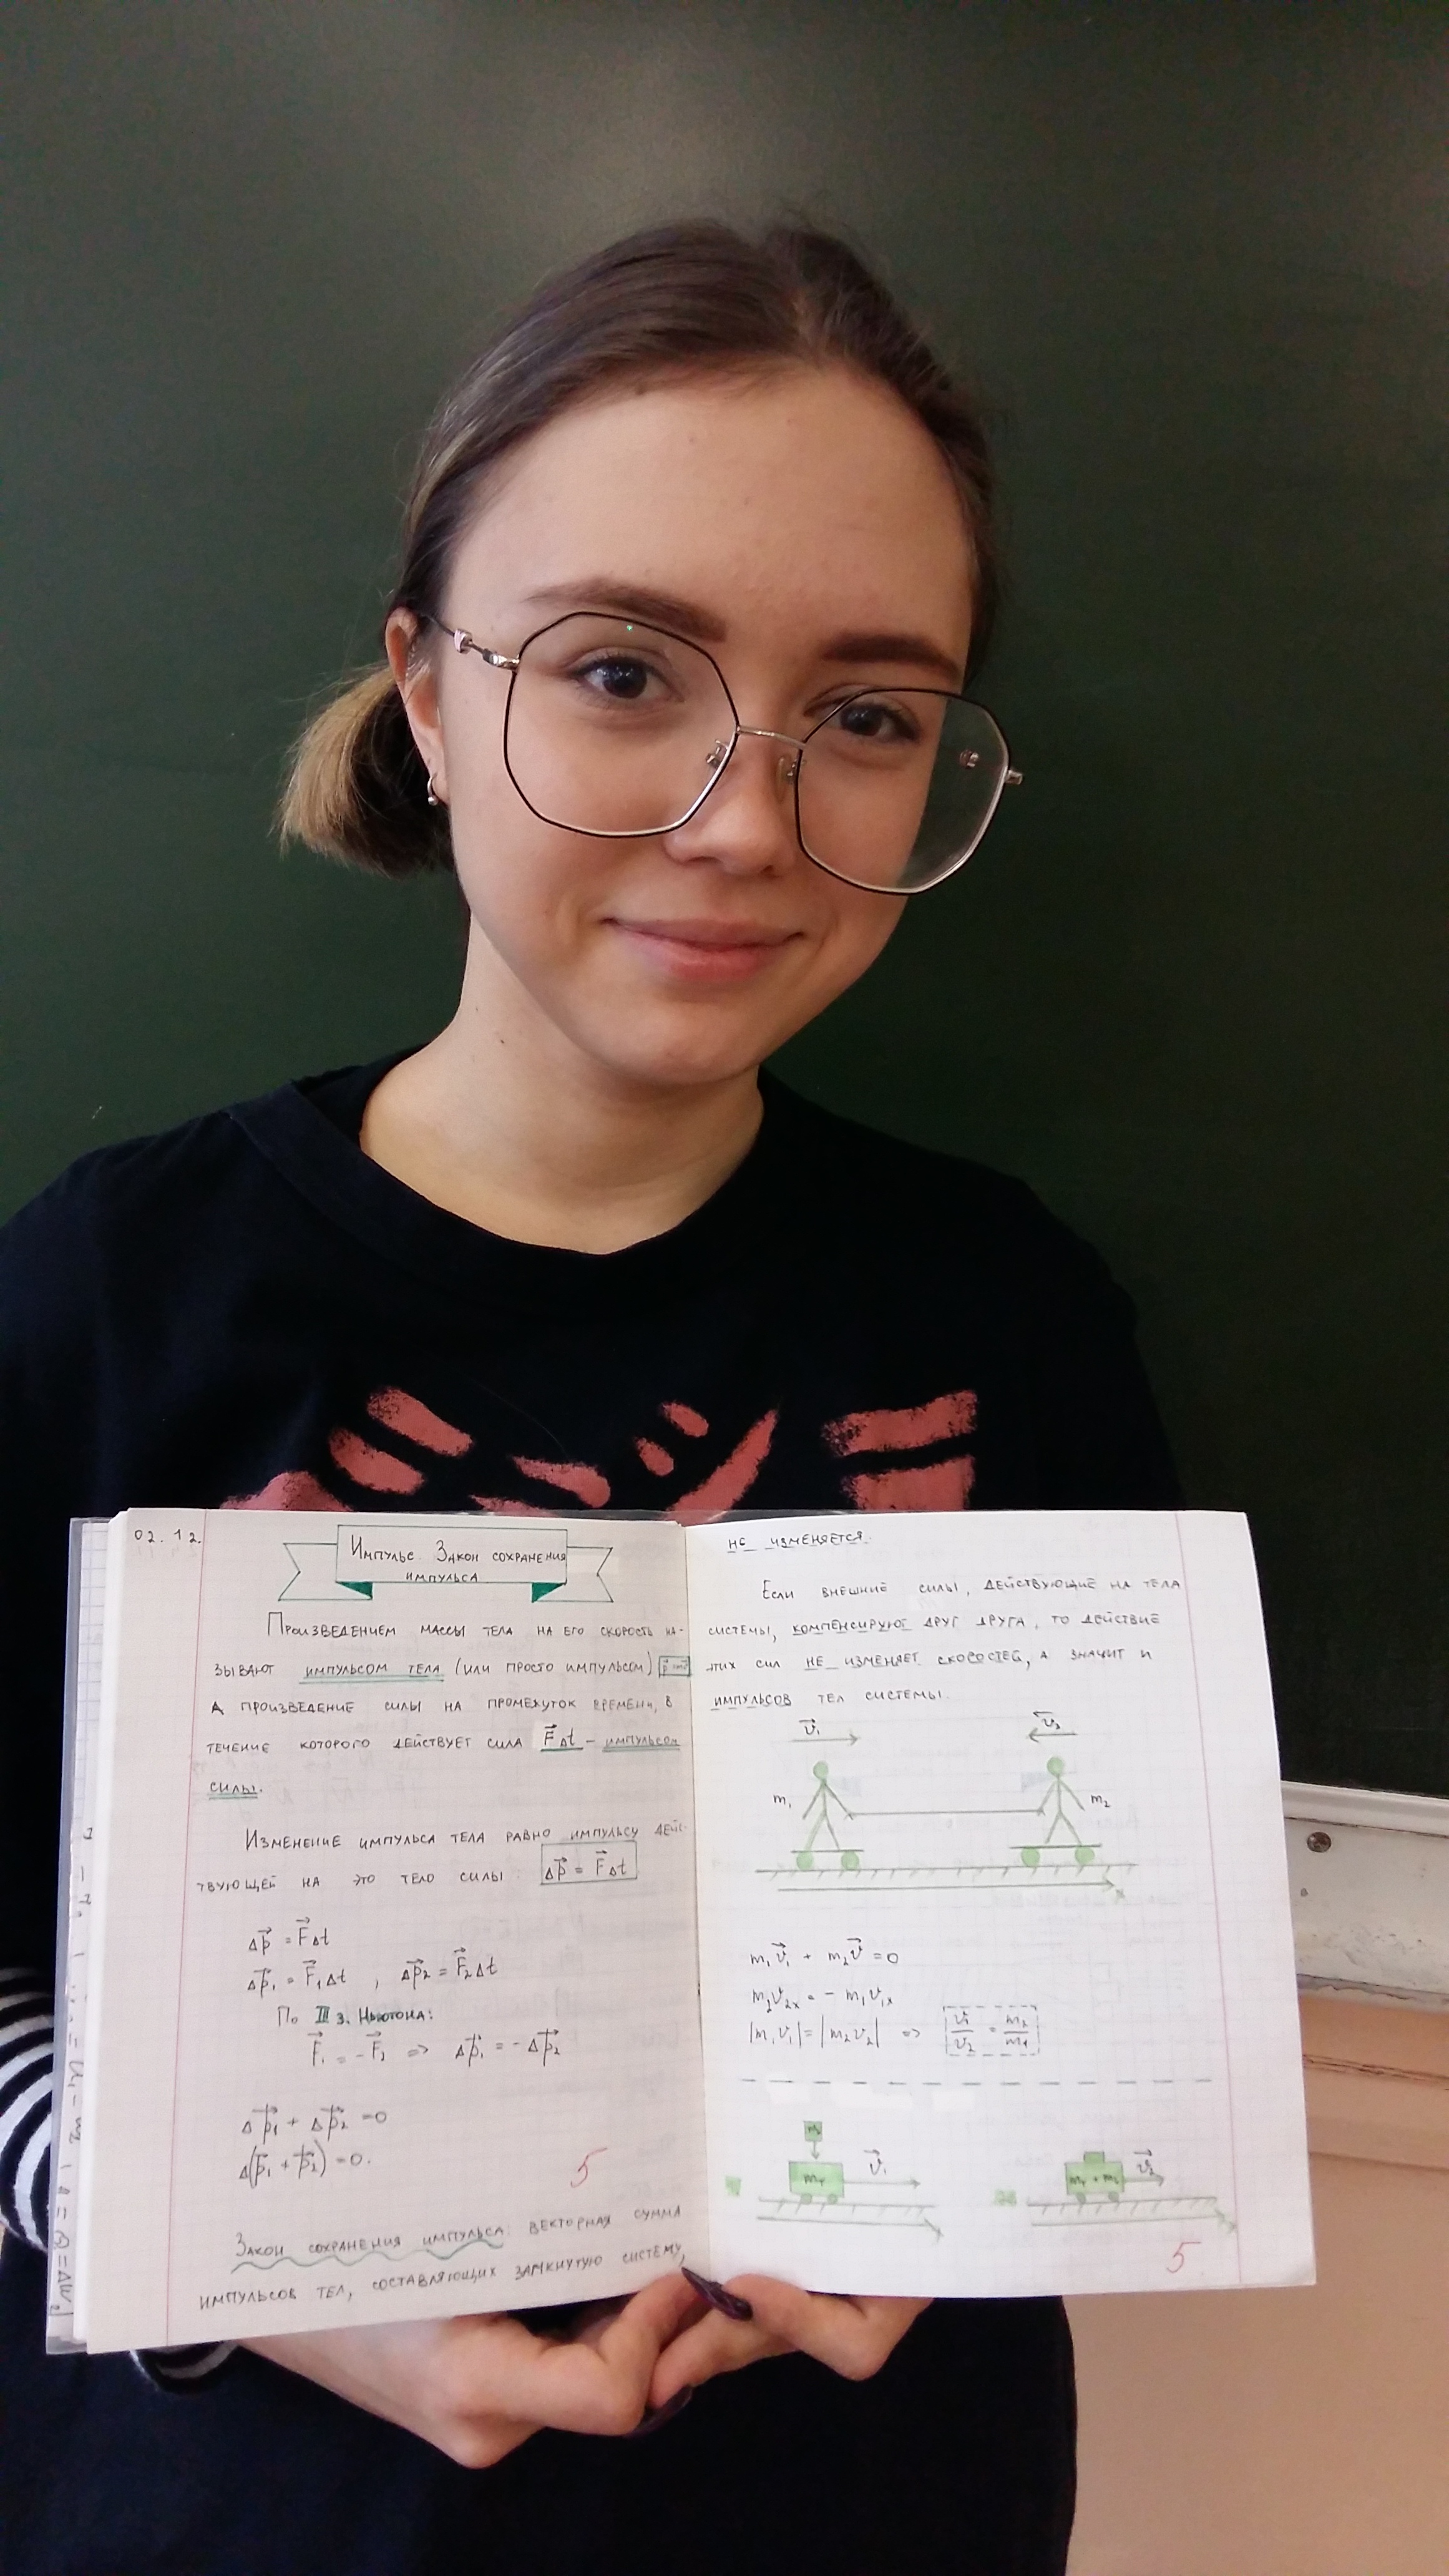 02.12.
Импульс. Закон сохранения
импульса
Произведением массы тела на его скорость на-
зывают импульсом тела (или просто импульсом)
А произведение силы на промежуток времени, в
течение которого действует сила F⃗Δt – импульсом
силы.
Изменение импульса тела равно импульсу дейс-
твующей на это тело силы: Δp⃗ = F⃗Δt
Δp⃗ = F⃗Δt
Δp⃗₁ = F⃗₁Δt , Δp⃗₂ = F⃗₂Δt
По III з. Ньютона:
F⃗₁ = –F⃗₂ => Δp⃗₁ = –Δp⃗₂
Δp⃗₁ + Δp⃗₂ =0
Δ(p⃗₁ + p⃗₂) =0.
5
Закон сохранения импульса: векторная сумма
импульсов тел, составляющих замкнутую систему,
не изменяется.
Если внешние силы, действующие на тела
системы, компенсируют друг друга, то действие
этих сил не изменяет скоростей, а значит и
импульсов тел системы.
v⃗₁ v⃗₂
m₁ m₂
x
m₁v⃗₁ + m₂v⃗ =0
m₂v₂ₓ = – m₁v₁ₓ
|m₁v₁| = |m₂v₂| => v₁/v₂ = m₂/m₁
m₂
m₁ v⃗₁ m₁ + m₂ v⃗₂
x x
5